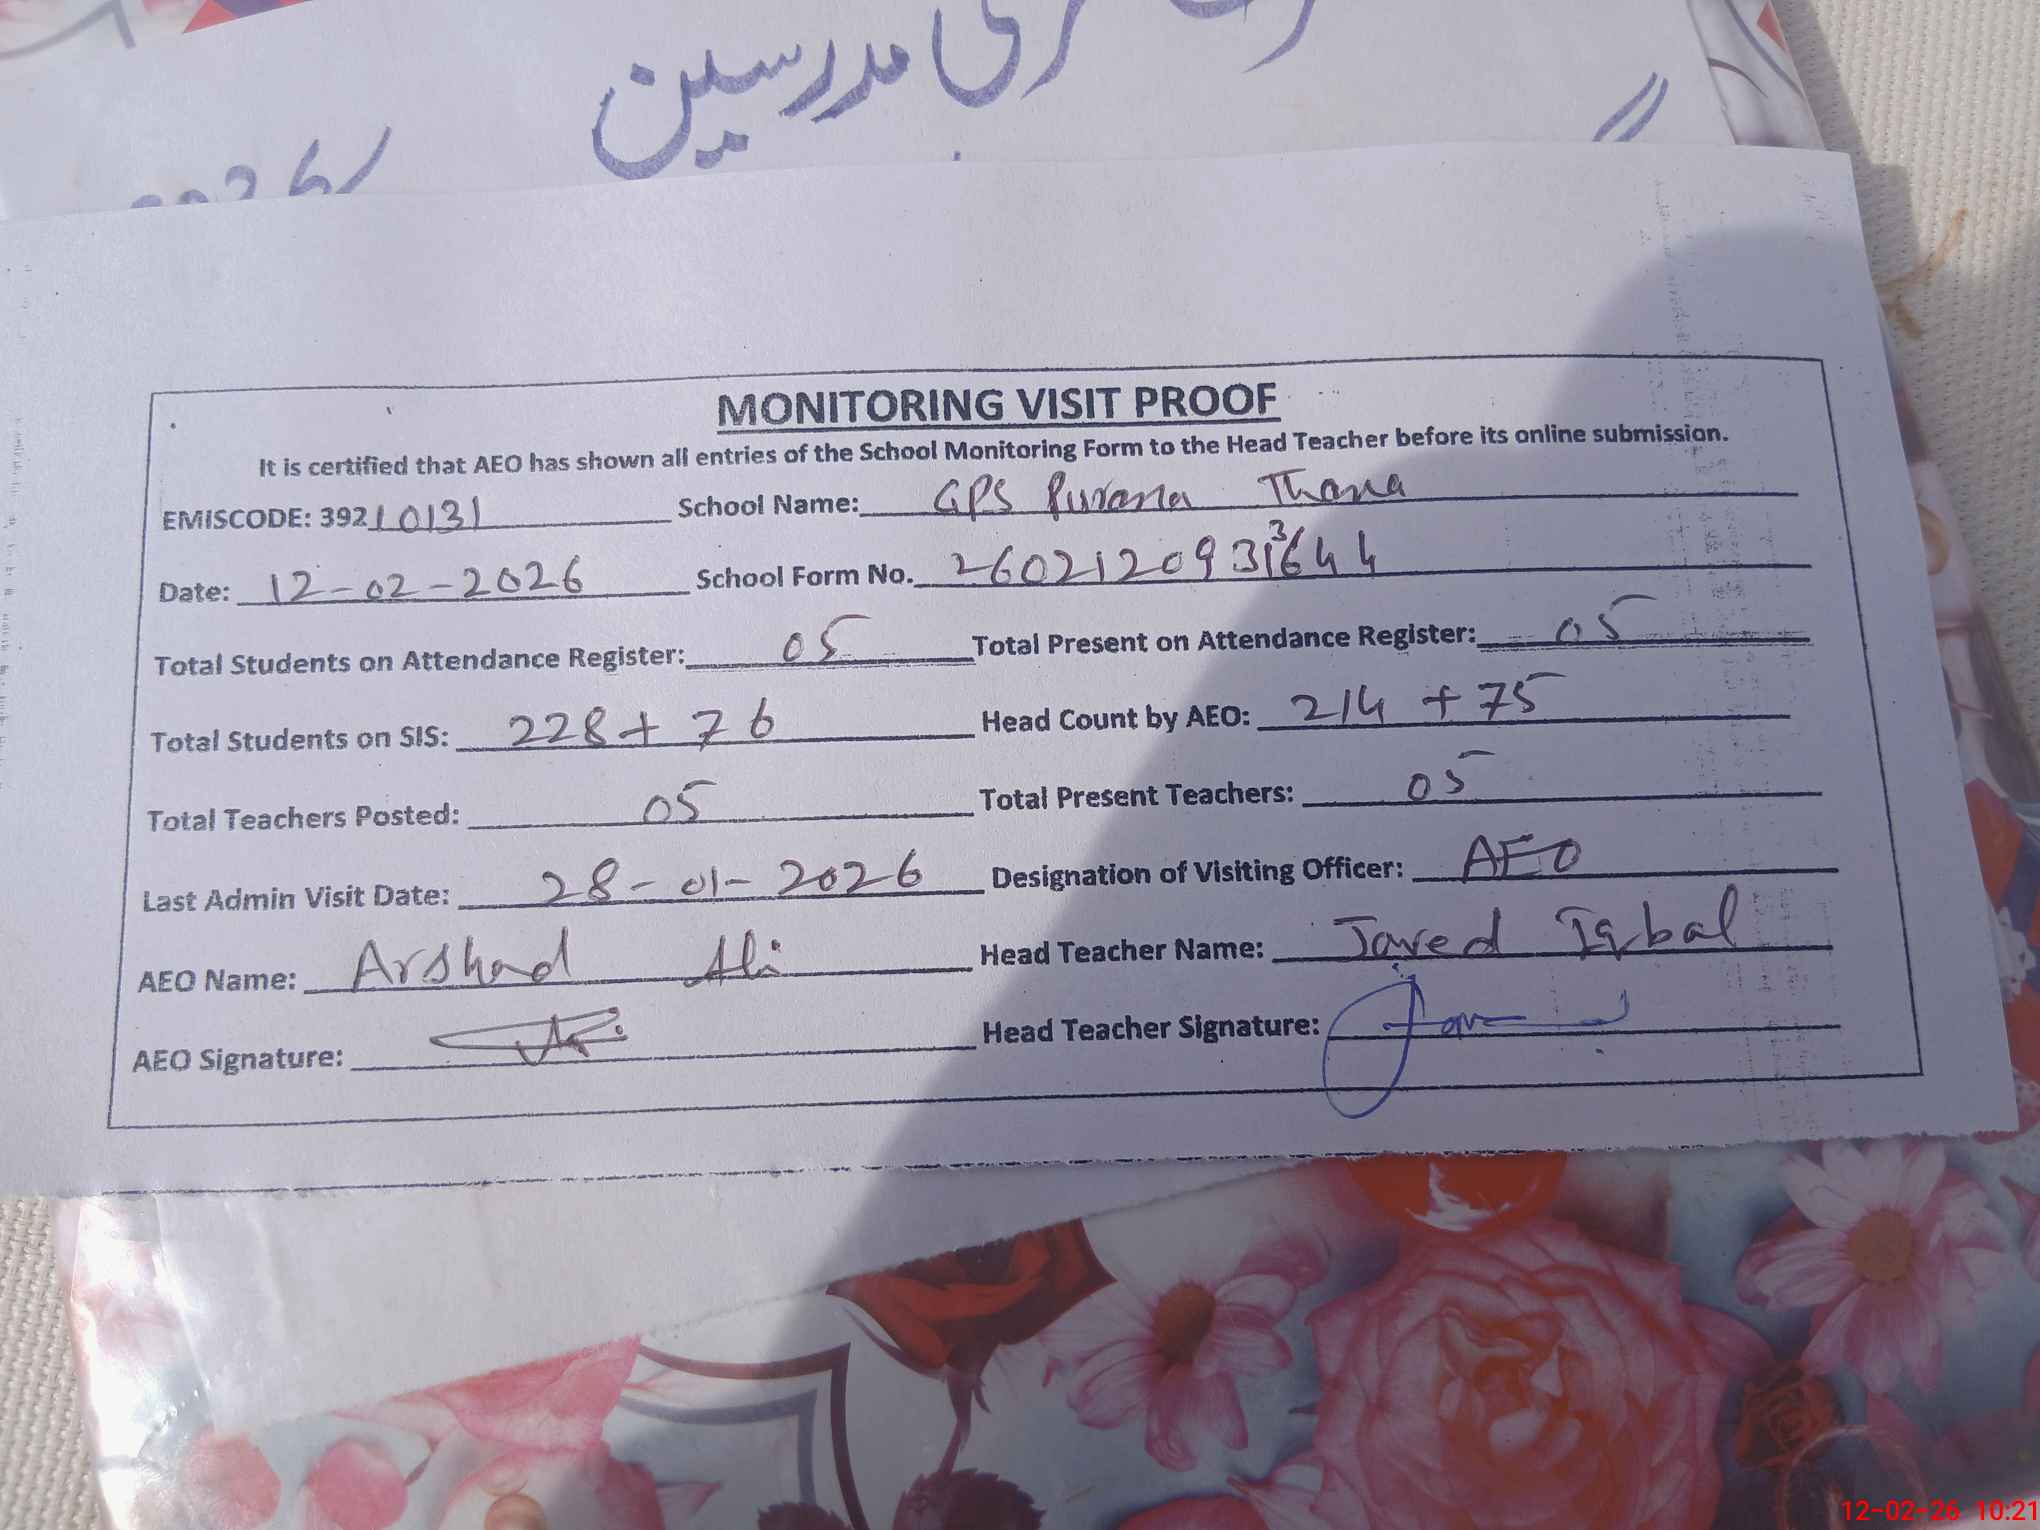 مدرسین
MONITORING VISIT PROOF
It is certified that AEO has shown all entries of the School Monitoring Form to the Head Teacher before its online submission.
EMISCODE: 39210131 School Name: GPS Purana Thana
Date: 12-02-2026 School Form No. 
Total Students on Attendance Register: 05 Total Present on Attendance Register: 05
Total Students on SIS: 228+76 Head Count by AEO: 214+75
Total Teachers Posted: 05 Total Present Teachers: 05
Last Admin Visit Date: 28-01-2026 Designation of Visiting Officer: AEO
AEO Name: Arshad Ali Head Teacher Name: Javed Iqbal
AEO Signature: Head Teacher Signature:
12-02-26 10:21